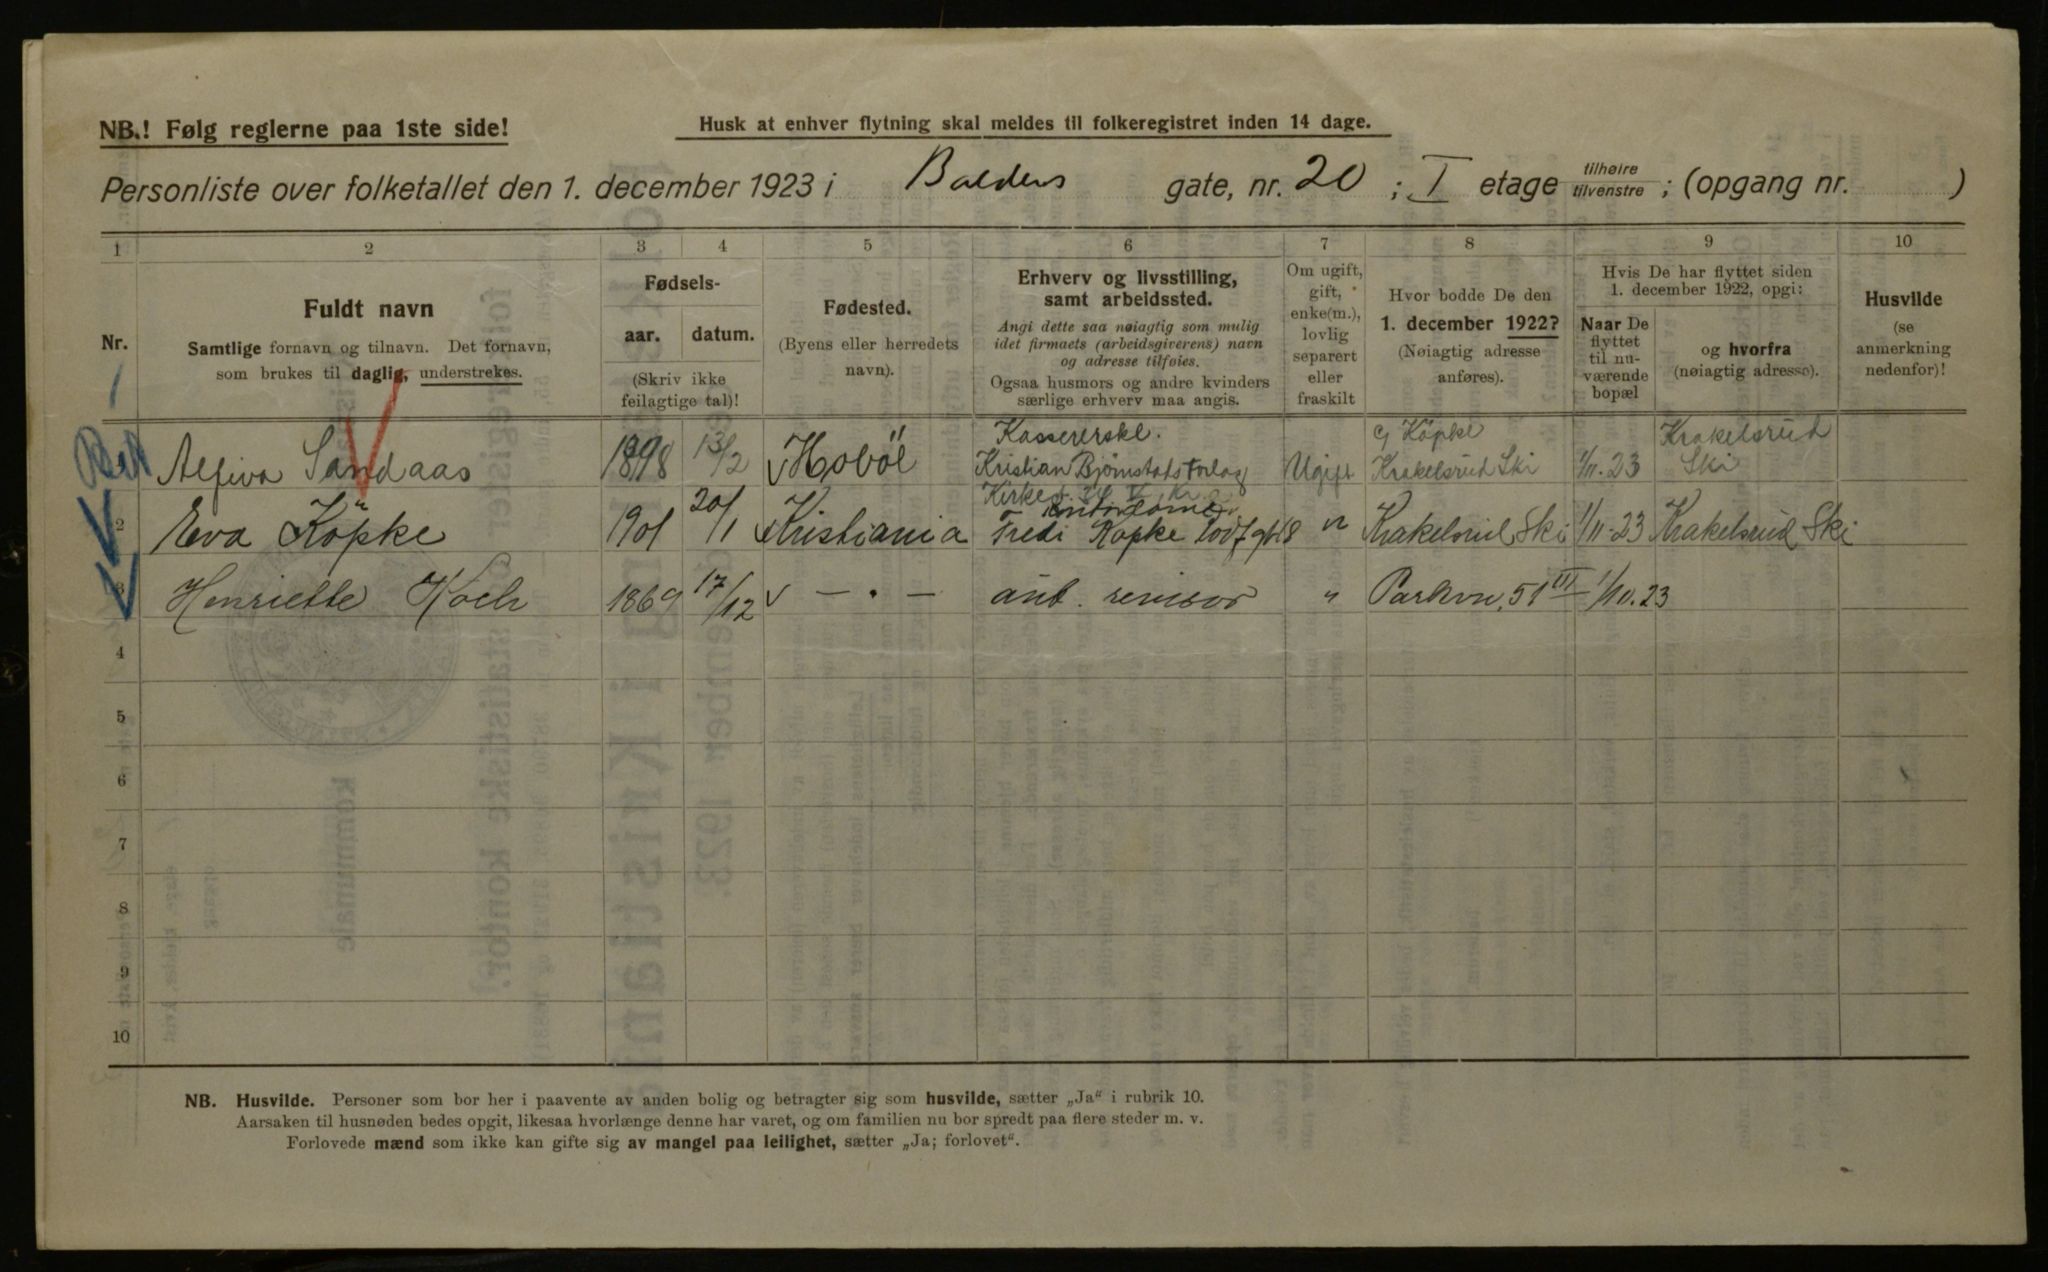 NB.! Følg reglerne paa 1ste side!
Husk at enhver flytning skal meldes til folkeregistret inden 14 dage.
Personliste over folketallet den 1. december 1923 i Balders gate, nr. 20 ; I etage tilhøire/tilvenstre ; (opgang nr. )
1 2 3 4 5 6 7 8 9 10
Nr.
Fuldt navn
Samtlige fornavn og tilnavn. Det fornavn,
som brukes til daglig, understrekes.
Fødsels-
aar. datum.
(Skriv ikke
feilagtige tal)!
Fødested.
(Byens eller herredets
navn).
Erhverv og livsstilling,
samt arbeidssted.
Angi dette saa nøiagtig som mulig
idet firmaets (arbeidsgiverens) navn
og adresse tilføies.
Ogsaa husmors og andre kvinders
særlige erhverv maa angis.
Om ugift,
gift,
enke(m.),
lovlig
separert
eller
fraskilt
Hvor bodde De den
1. december 1922?
(Nøiagtig adresse
anføres).
Hvis De har flyttet siden
1. december 1922, opgi:
Naar De
flyttet
til nu-
værende
bopæl
og hvorfra
(nøiagtig adresse).
Husvilde
(se
anmerkning
nedenfor)!
Kassererske. c/ Köpke Krakelsrud
Alfiva Sandaas 1898 13/2 Hobøl Kristian Bjørnstads Forlag Ugift Krakelsrud Ski 1/11.23 Ski
Kirkeg. 34
2 Eva Köpke 1901 20/1 Kristiania Fredi Köpke " Krakelsrud Ski 1/11-23 Krakelsrud Ski
3 Henriette Koch 1869 17/12 — " — ant. revisor " Parkvn. 51 III 1/10.23
4
5
6
7
8
9
10
NB. Husvilde. Personer som bor her i paavente av anden bolig og betragter sig som husvilde, sætter „Ja“ i rubrik 10.
Aarsaken til husnøden bedes opgit, likesaa hvorlænge denne har varet, og om familien nu bor spredt paa flere steder m. v.
Forlovede mænd som ikke kan gifte sig av mangel paa leilighet, sætter „Ja; forlovet“.